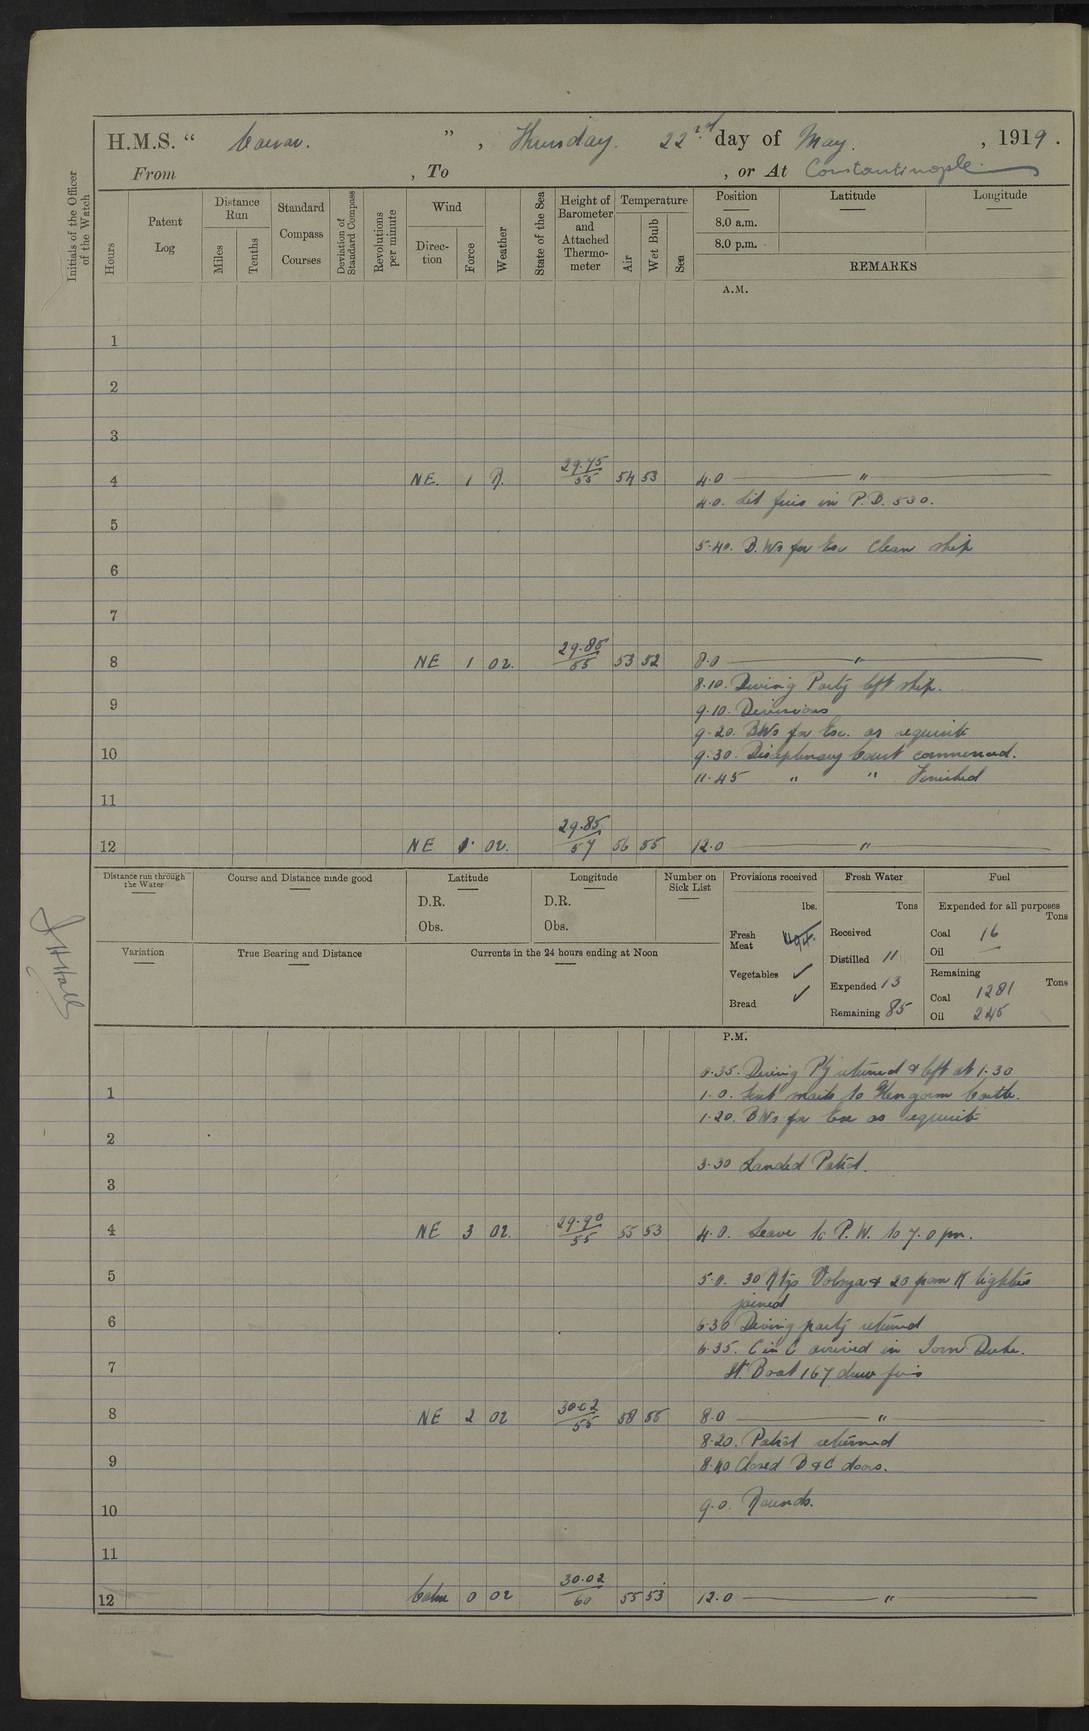 H.M.S. “ Caesar. ” , Thursday. 22nd day of May. , 1919.
From , To , or At Constantinople
Initials of the Officer of the Watch
Hours
Patent Log
Distance Run
Miles
Tenths
Standard Compass Courses
Deviation of Standard Compass
Revolutions per minute
Wind
Direction
Force
Weather
State of the Sea
Height of Barometer and Attached Thermometer
Temperature
Air
Wet Bulb
Sea
Position Latitude Longitude
8.0 a.m.
8.0 p.m.
REMARKS
A.M.
1
2
3
4 NE. 1 R. 29.75/55 54 53 4.0 "
4.0. Lit fires in P.D. 530.
5
5.40. B.Ws for Exc Clean ship
6
7
8 NE 1 02. 29.85/55 53 52 8.0 "
8.10. Diving Party left ship.
9
9.10. Divisions
9.20. BWs for Exc. as requisite
10
9.30. Disciplinary Court commenced.
11.45 " " Finished
11
12 NE 1 02. 29.85/57 56 55 12.0 "
Distance run through the Water
Course and Distance made good
Latitude
D.R.
Obs.
Longitude
D.R.
Obs.
Number on Sick List
Provisions received
lbs.
Fresh Meat 494.
Vegetables ✓
Bread ✓
Fresh Water
Tons
Received
Distilled 11
Expended 13
Remaining 85
Fuel
Expended for all purposes
Tons
Coal 16
Oil —
Remaining
Tons
Coal 1281
Oil 245
Variation
True Bearing and Distance
Currents in the 24 hours ending at Noon
J H Hall
P.M.
0.35. Diving Pty returned & left at 1.30
1 1.0. Sent mails to Glengorm Castle.
1.20. BWs for Exc as requisite
2
3.30 Landed Patrol.
3
4 NE 3 02. 29.90/55 55 53 4.0. Leave to P.W. to 7.0 pm.
5 5.0. 30 Rtgs Volnga & 20 from K lighter
joined
6 6.30 Diving party returned
6.35. C in C arrived in Iron Duke.
7 St Boat 167 drew fires
8 NE 2 02 30.02/55 58 55 8.0 "
8.20. Patrol returned
9 8.40 Closed B & C doors.
9.0. Rounds.
10
11
12 Calm 0 02 30.02/60 55 53 12.0 "